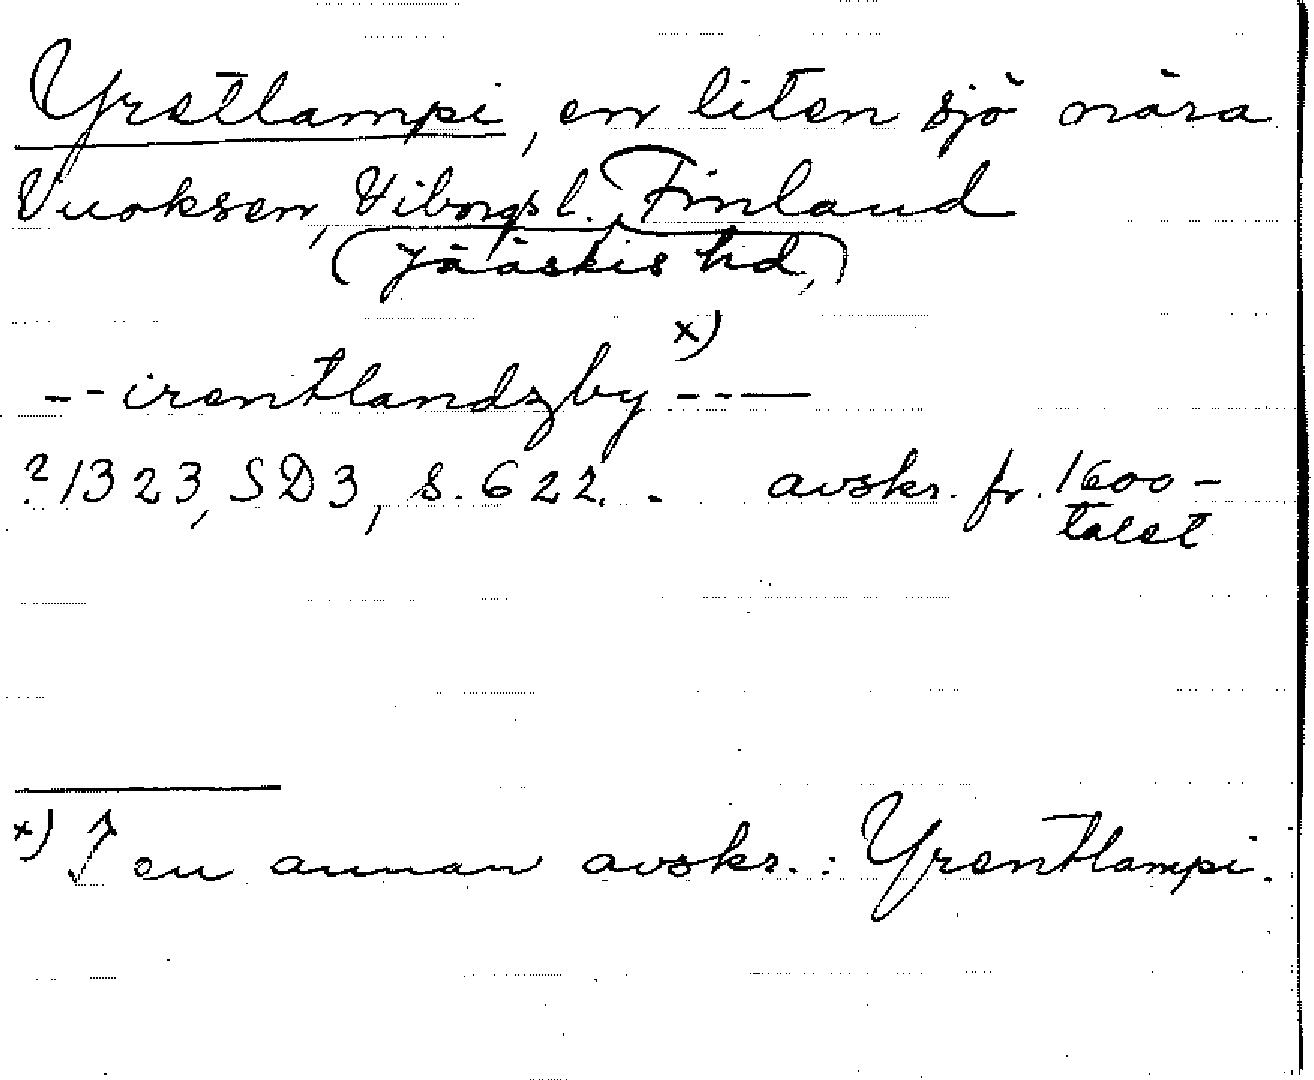 Yretlampi, en liten sjö nära
Vuoksen, Viborgs l. Finland
(Jääskis hd,)
-- irentlandzby x) ---
? 1323, SD3, s. 622. - avskr. fr. 1600-
talet
x) I en annan avskr.: Yrentlampi.